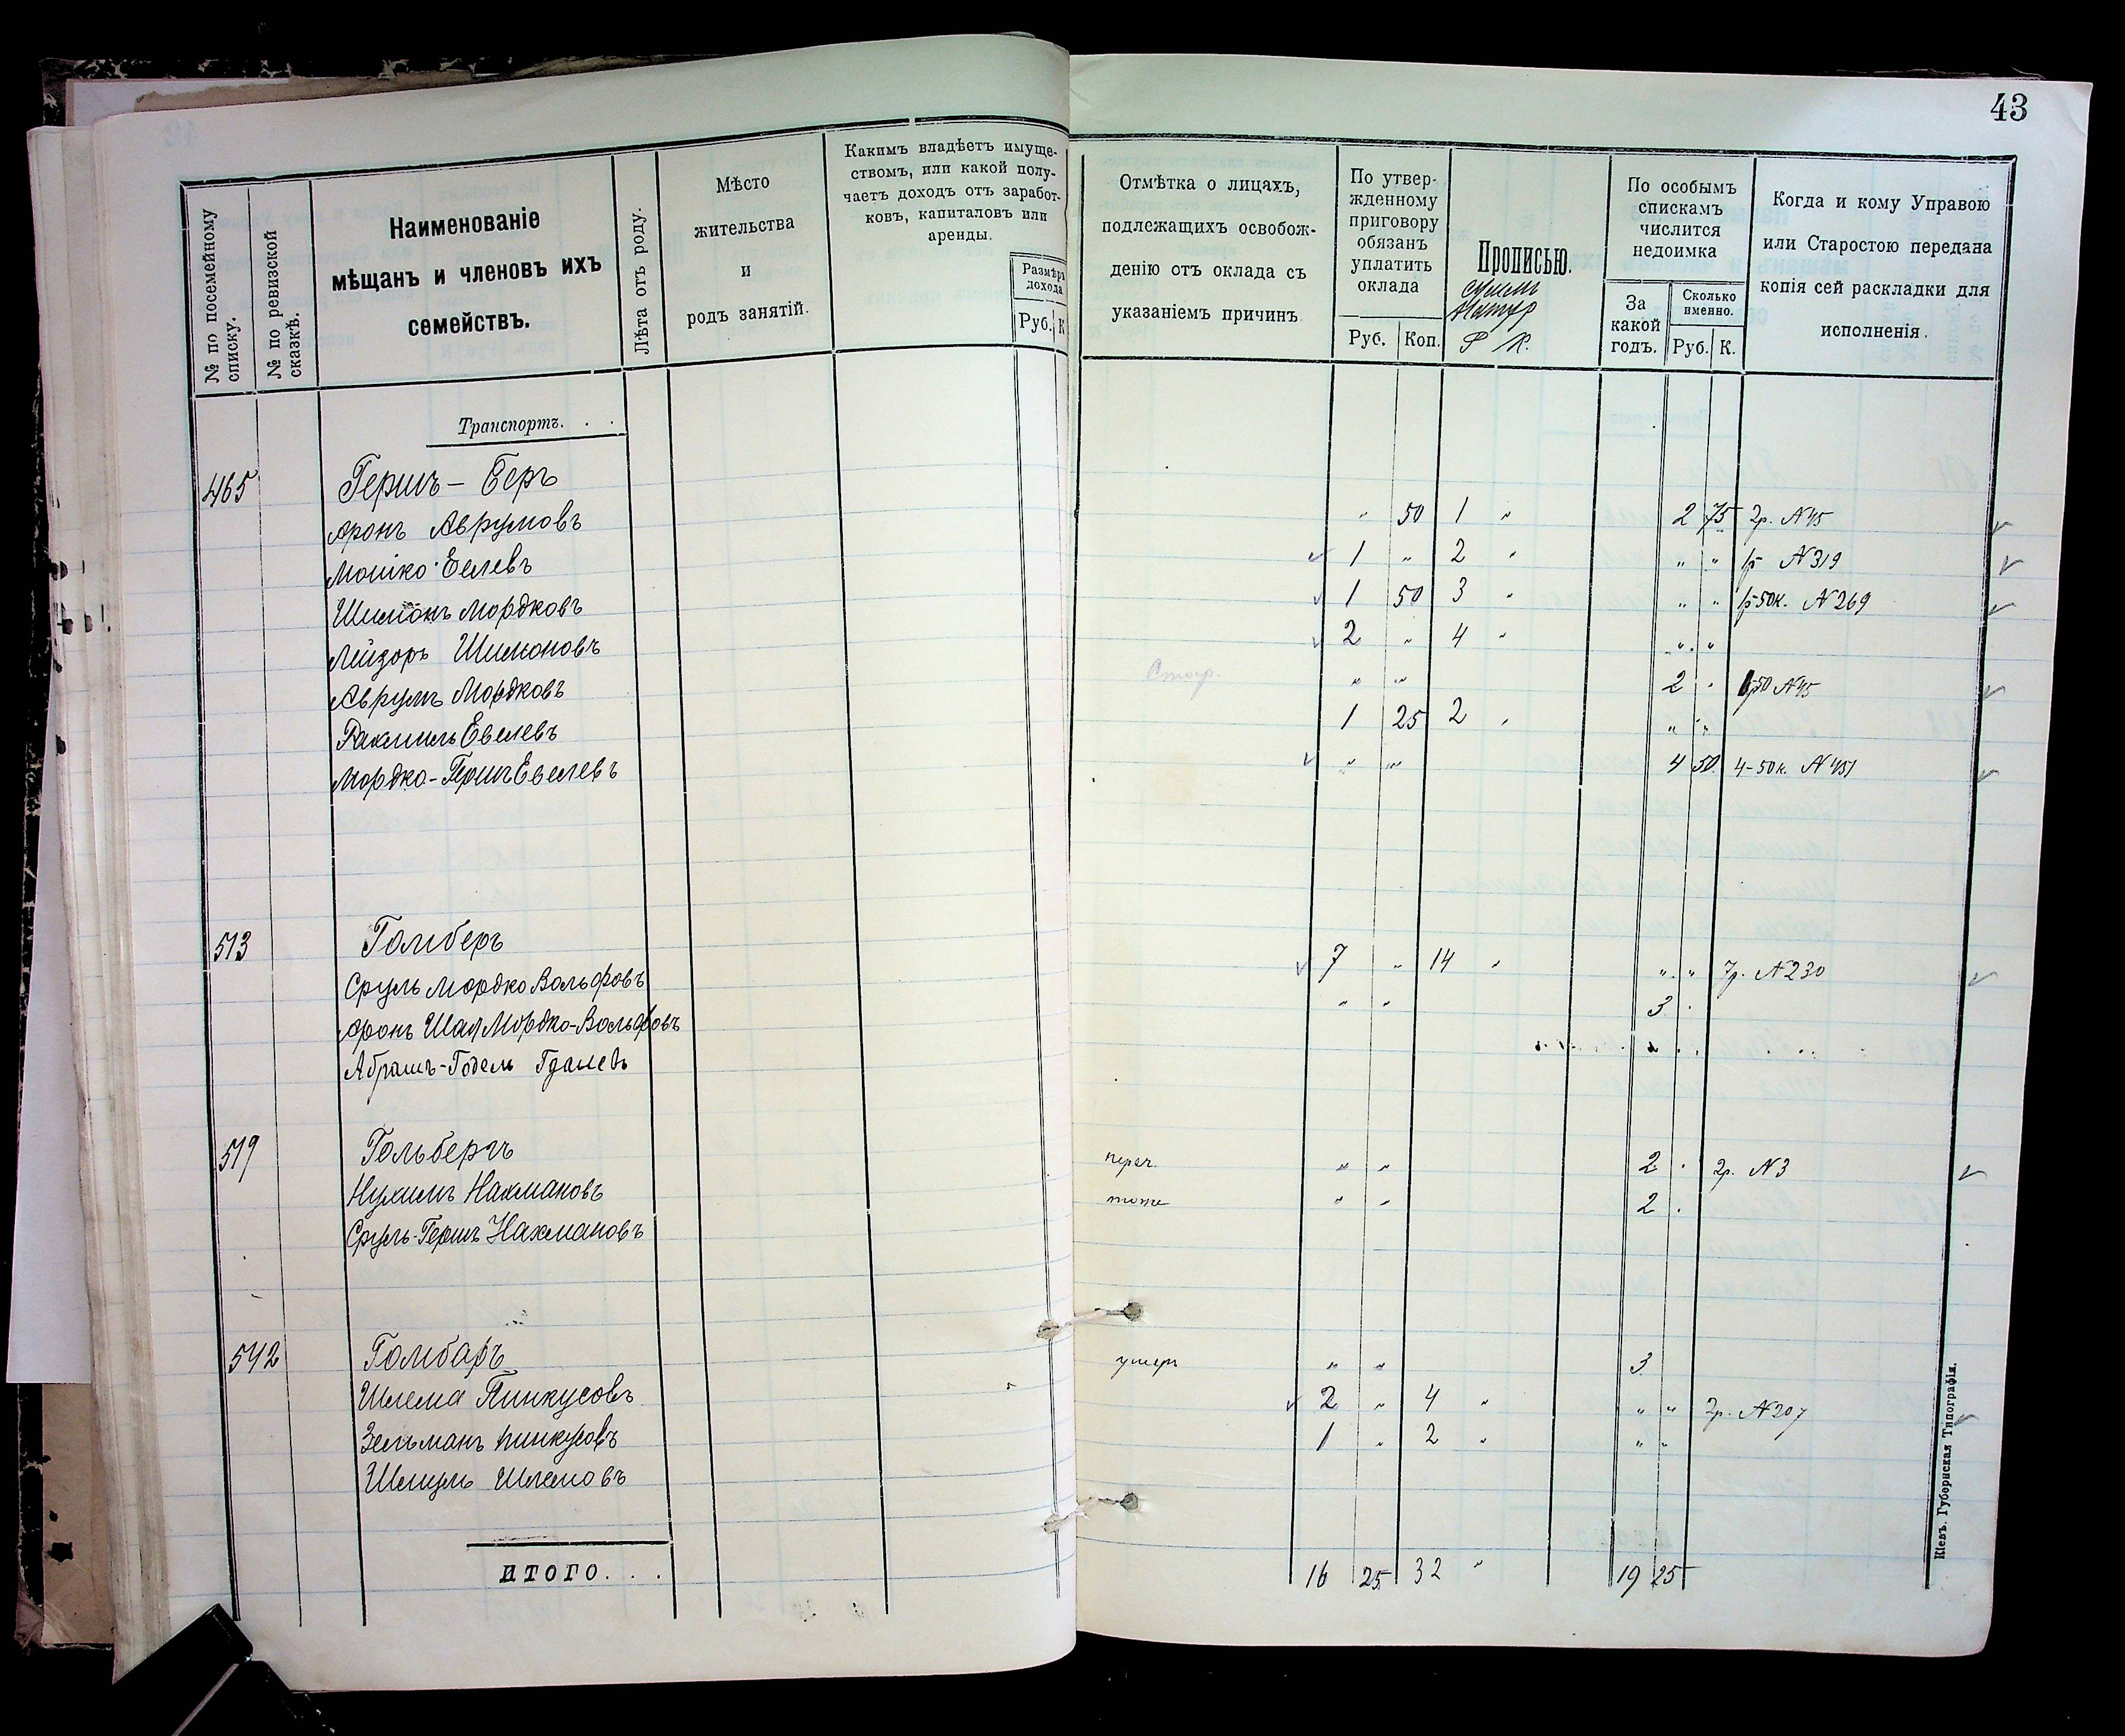 43
№ по посемейному списку.
№ по ревизской сказкѣ.
Наименованіе
мѣщанъ и членовъ ихъ
семействъ.
Лѣта отъ роду.
Мѣсто
жительства
и
родъ занятій.
Какимъ владѣетъ имуще-
ствомъ, или какой полу-
чаетъ доходъ отъ заработ-
ковъ, капиталовъ или
аренды.
Размѣръ
дохода
Руб. К
Отмѣтка о лицахъ,
подлежащихъ освобож-
денію отъ оклада съ
указаніемъ причинъ
По утвер-
жденному
приговору
обязанъ
уплатить
оклада
Руб. Коп.
Прописью.
Р К.
По особымъ
спискамъ
числится
недоимка
За
какой
годъ.
Сколько
именно.
Руб. К.
Когда и кому Управою
или Старостою передана
копія сей раскладки для
исполненія.
Транспортъ. . .
465 Гершъ-Беръ
Аронъ Аврумовъ " 50 1 " 2 75 2р. N 45
Мошко Евелевъ 1 " 2 " " " 1р N 319
Шимонъ Мордковъ 1 50 3 " " " 1р 50к. N 269
Лейзоръ Шимоновъ 2 " 4 " " "
Аврумъ Мордковъ " " 2 " 50 N 45
Рахмиль Евелевъ 1 25 2 " " "
Мордко-Гершъ Евелевъ " " 4 50 4-50к. N 451
513 Гомберъ
Сруль Мордко Вольфовъ 7 " 14 " " " 7р. N 230
Аронъ Шая Мордко-Вольфовъ " " 3 "
Абрамъ-Годель Гдалевъ
519 Гольбергъ
Нухимъ Нахмановъ " " 2 " 2р. N 3
Сруль-Гершъ Нахмановъ тоже " " 2 "
542 Гомбаръ
Шлема Пинкусовъ умеръ " " 3
Зельманъ Пинкусовъ 2 " 4 " " " 2р. N 207
Шмуль Шлемовъ 1 " 2 " " "
ИТОГО. . . 16 25 32 " 19 25
Кіевъ. Губернская Типографія.